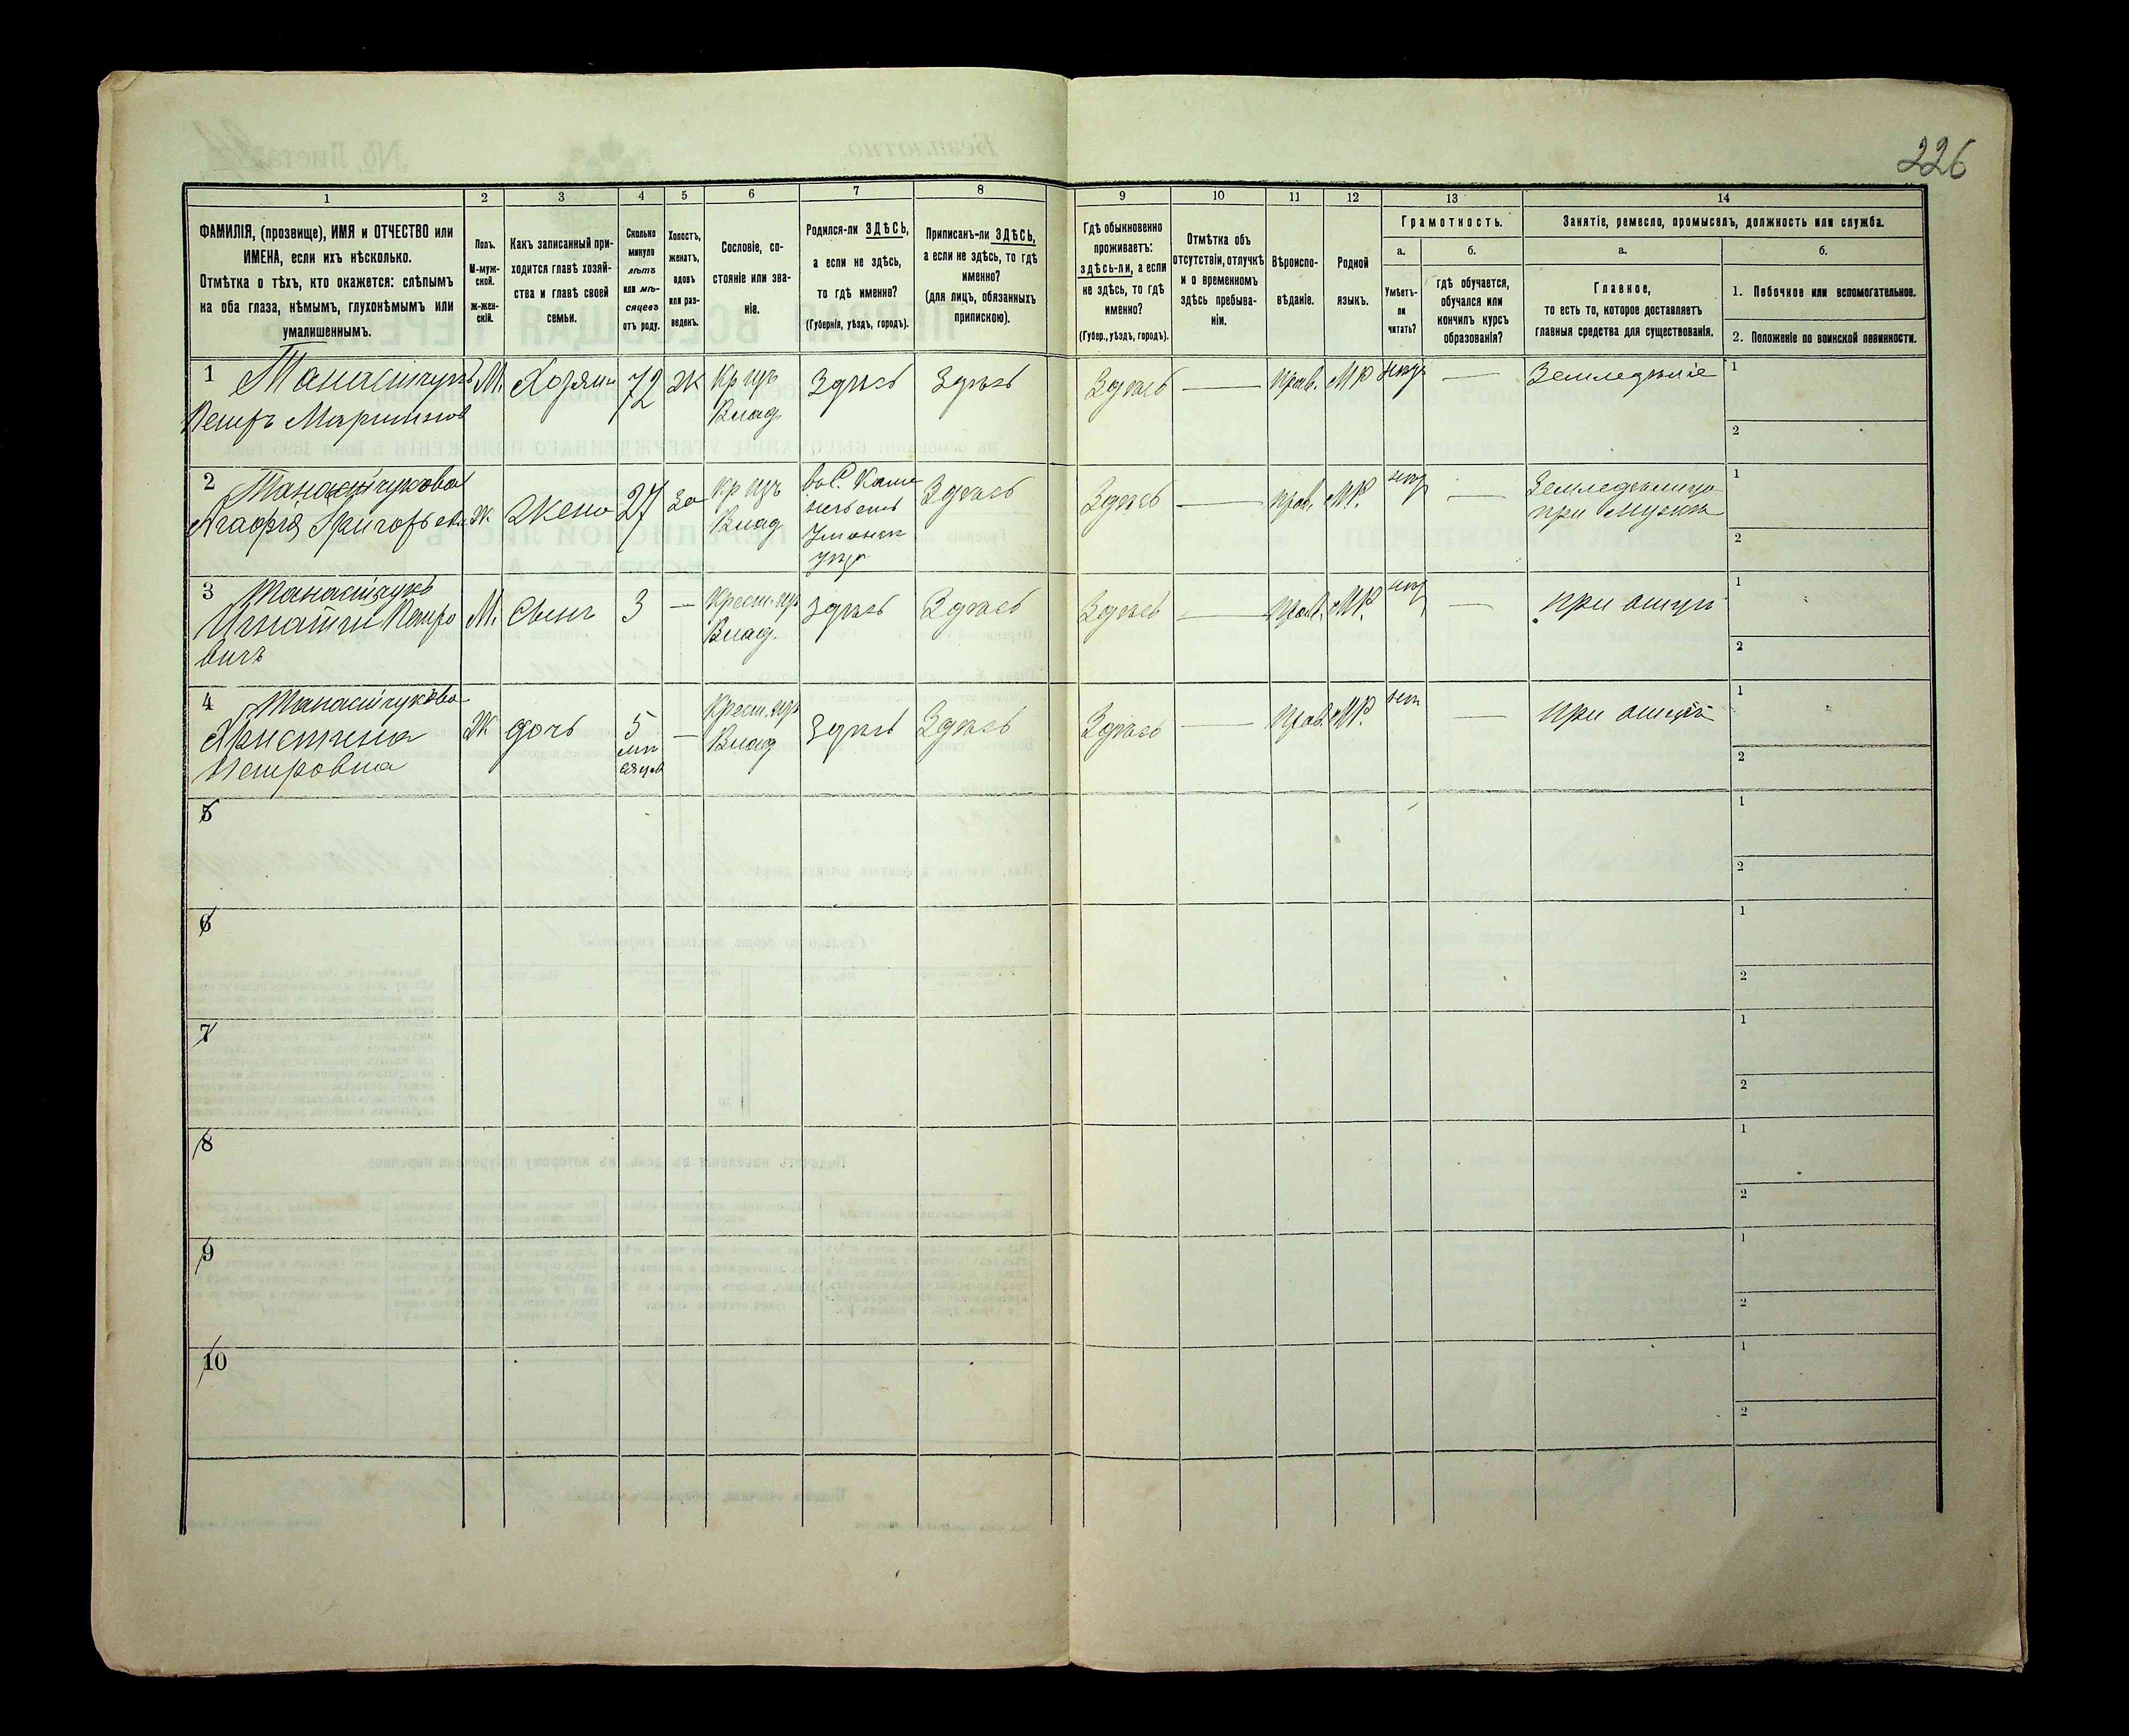 226
1 2 3 4 5 6 7 8 9 10 11 12 13 14
ФАМИЛІЯ, (прозвище), ИМЯ и ОТЧЕСТВО или
ИМЕНА, если ихъ нѣсколько.
Отмѣтка о тѣхъ, кто окажется: слѣпымъ
на оба глаза, нѣмымъ, глухонѣмымъ или
умалишеннымъ.
Полъ.
М-муж-
ской.
Ж-жен-
скій.
Какъ записанный при-
ходится главѣ хозяй-
ства и главѣ своей
семьи.
Сколько
минуло
лѣтъ
или мѣ-
сяцевъ
отъ роду.
Холостъ,
женатъ,
вдовъ
или раз-
веденъ.
Сословіе, со-
стояніе или зва-
ніе.
Родился-ли ЗДѢСЬ,
а если не здѣсь,
то гдѣ именно?
(Губернія, уѣздъ, городъ).
Приписанъ-ли ЗДѢСЬ,
а если не здѣсь, то гдѣ
именно?
(для лицъ, обязанныхъ
припискою).
Гдѣ обыкновенно
проживаетъ:
здѣсь-ли, а если
не здѣсь, то гдѣ
именно?
(Губер., уѣздъ, городъ).
Отмѣтка объ
отсутствіи, отлучкѣ
и о временномъ
здѣсь пребыва-
ніи.
Вѣроиспо-
вѣданіе.
Родной
языкъ.
Грамотность.
а.
Умѣетъ-
ли
читать?
б.
гдѣ обучается,
обучался или
кончилъ курсъ
образованія?
Занятіе, ремесло, промыселъ, должность или служба.
а.
Главное,
то есть то, которое доставляетъ
главныя средства для существованія.
б.
1. Побочное или вспомогательное.
2. Положеніе по воинской повинности.
1 Танащукъ М. Хозяин 72 Ж Кр изъ Здѣсь Здѣсь Здѣсь — Прав. МР нѣтъ — Земледѣліе 1
Петръ Мартинов Влад. 2
2 Ж. Жена 27 За Кр изъ Здѣсь Здѣсь — Прав. М.Р. — 1
Агафія Влад при 2
3 М. Сынъ 3 — Крест. изъ Здѣсь Здѣсь Здѣсь — Прав. МР. — при отцу 1
Петро Влад. 2
вичъ
4 Ж дочь 5 — Крест. изъ Здѣсь Здѣсь Здѣсь — Прав. МР. — при отцу 1
Христина мѣ Влад 2
Петровна сяцев
5 1
2
6 1
2
7 1
2
8 1
2
9 1
2
10 1
2